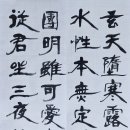 天隨寒露
水性本無定
團明雖可愛
從君坐三夜